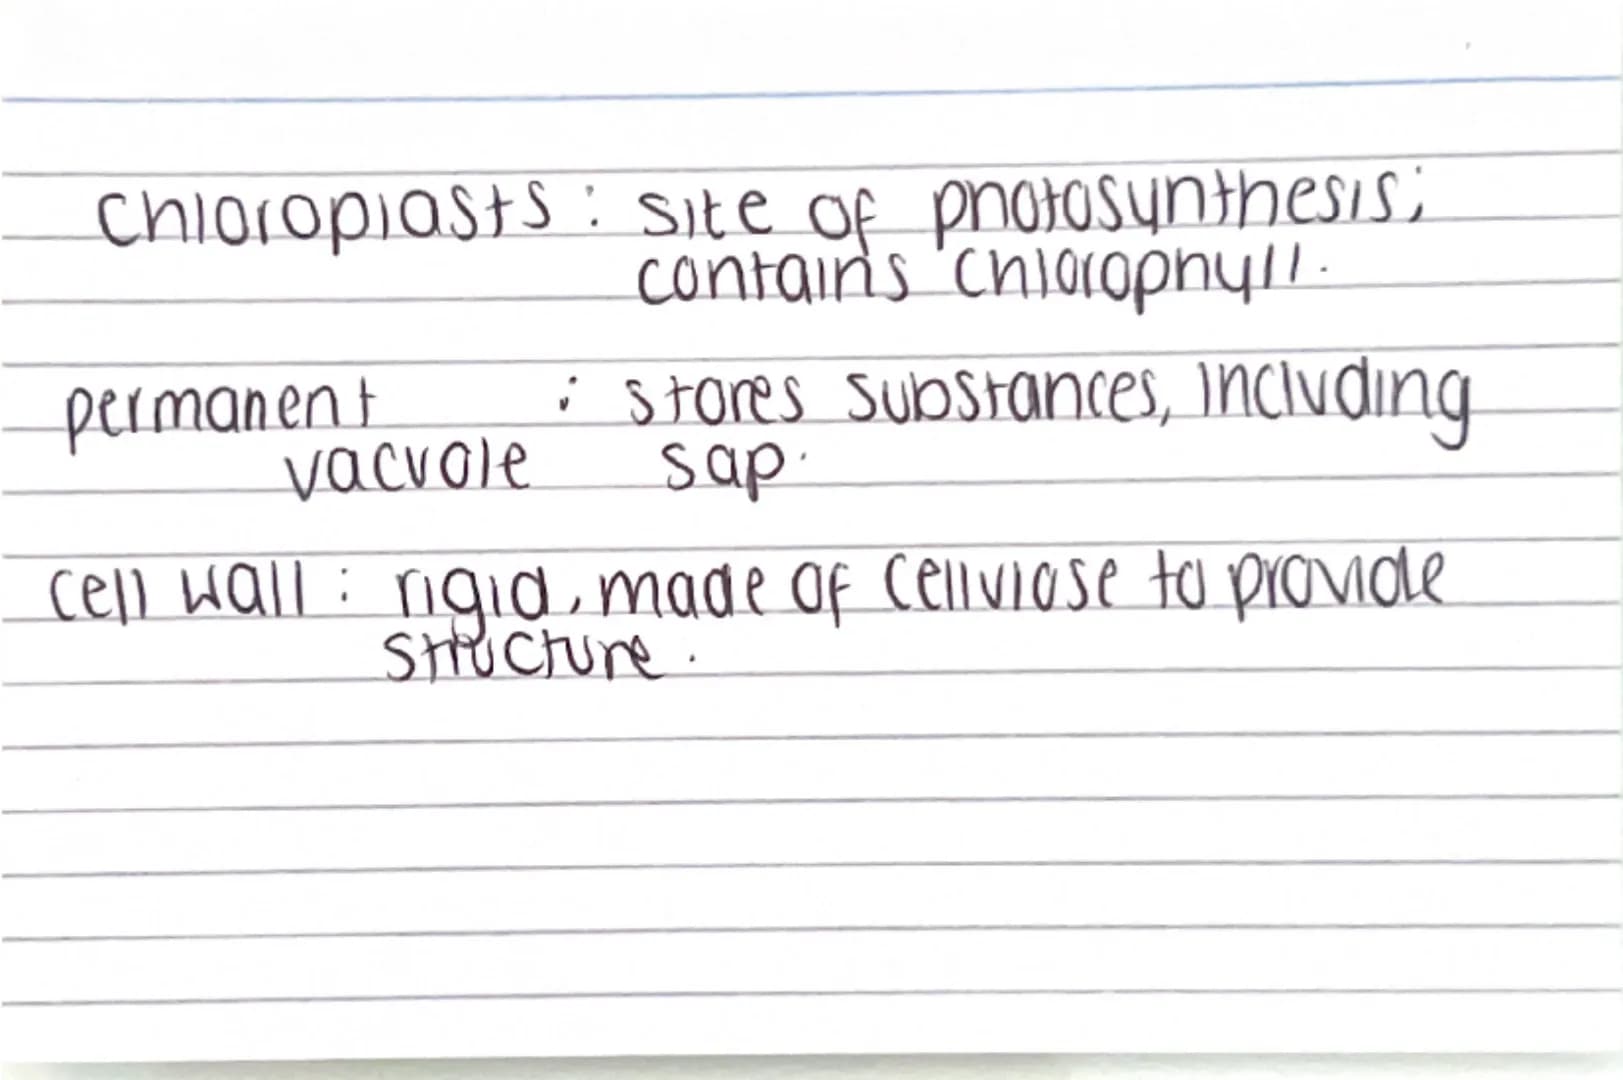 Chloroplasts : site of photosynthesis;
contains chlorophyll.
permanent : stores substances, including
vacuole sap.
cell wall : rigid, made of cellulose to provide
structure.